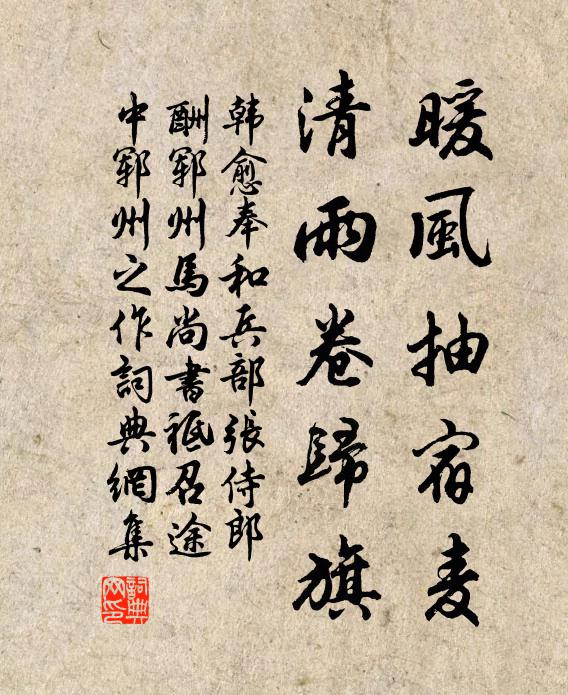 暖風抽宿麦
清雨卷歸旗
韩愈奉和兵部張侍郎
酬鄆州馬尚書祗召途
中鄆州之作詞典網集
詞典
网印